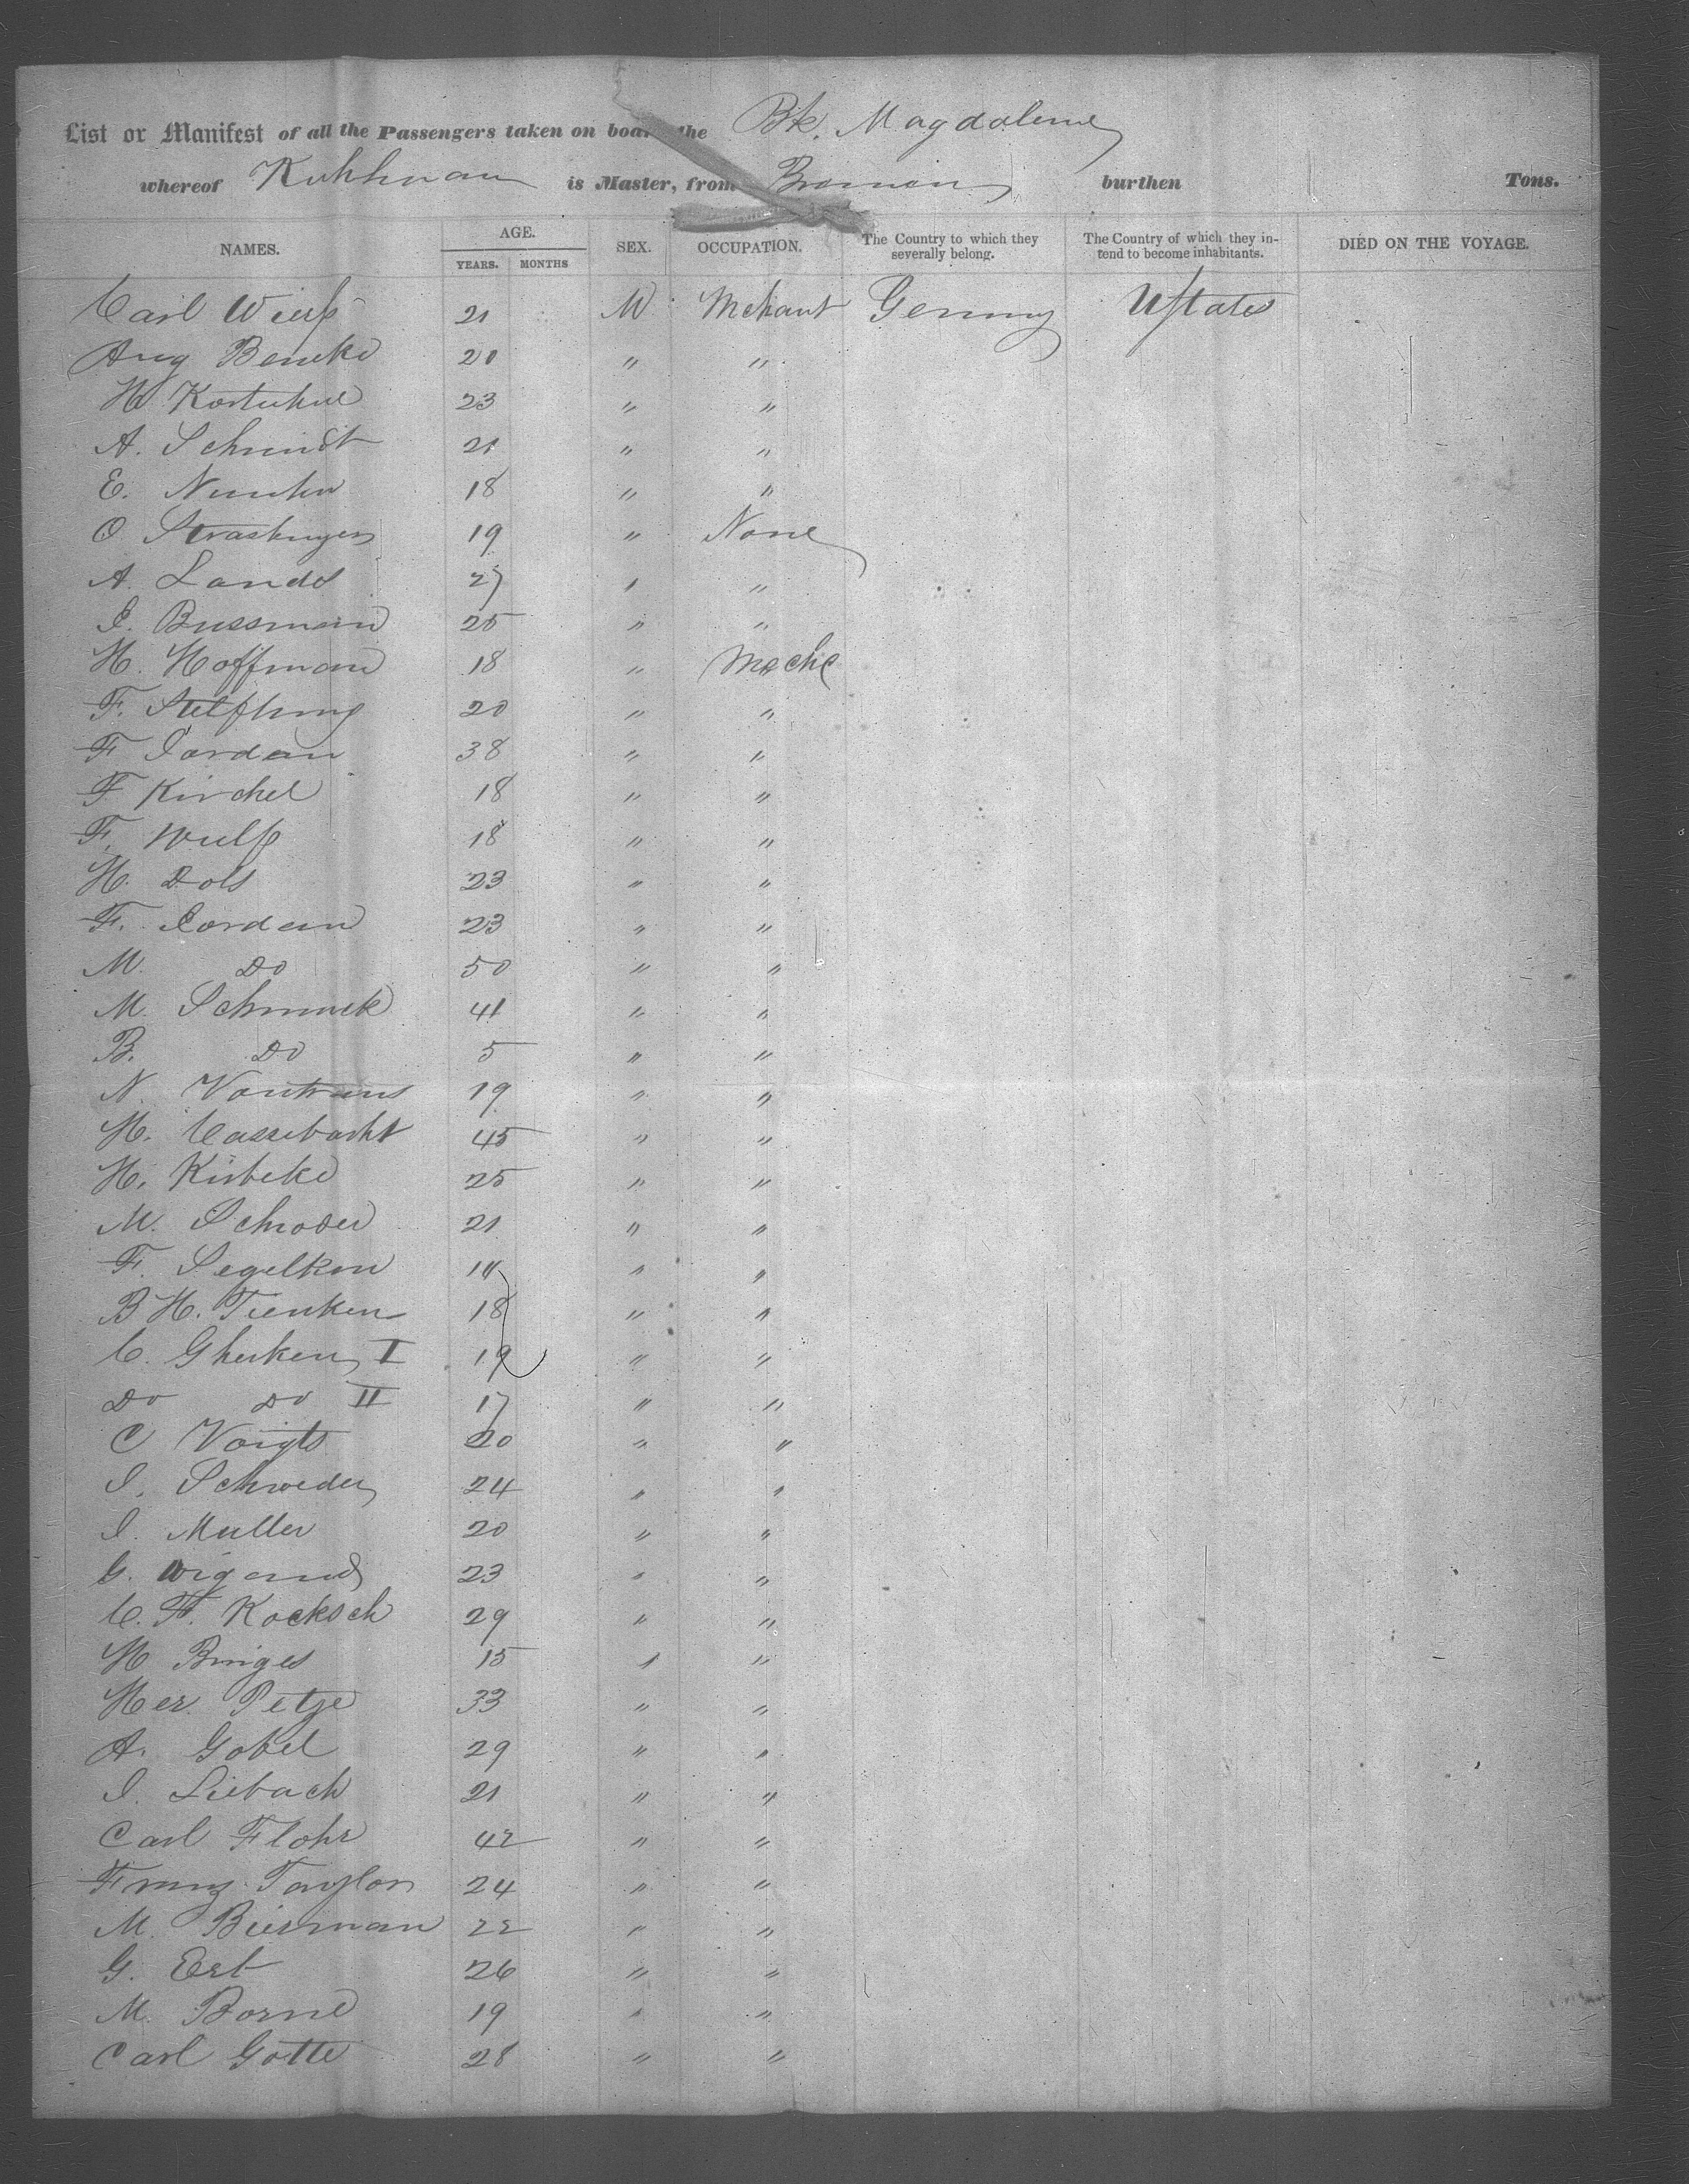 List or Manifest of all the Passengers taken on board the Bk. Magdalene
whereof is Master, from Bremen burthen Tons.
NAMES. AGE. YEARS. MONTHS SEX. OCCUPATION. The Country to which they severally belong. The Country of which they intend to become inhabitants. DIED ON THE VOYAGE.
Carl 21 M Mchant Germny Ustates
Aug Beneke 20 " "
H. 23 " "
A. Schmidt 21 " "
E. 18 " "
O 19 " None
A. 27 " "
I. Bussman 25 " "
H. Hoffman 18 " Mechc
F. 20 " "
F Jordan 38 " "
F Kirchel 18 " "
F. Wulf 18 " "
H. Dols 23 " "
F. Jordan 23 " "
M. Do 50 " "
M. Schmuck 41 " "
B. Do 5 " "
N. 19 " "
H. Cassebacht 45 " "
H. 25 " "
M. Schroder 21 " "
F. Segelken " "
B H. Tienken 18 " "
C. Gherken I 19 " "
Do Do II 17 " "
C Voigts 20 " "
I. Schweder 24 " "
I. Muller 20 " "
G. Wigand 23 " "
C. F. Kocksch 29 " "
H Binges 15 " "
Her. Petze 33 " "
A. Gobel 29 " "
I. Liebach 21 " "
Carl Flohr 42 " "
Franz Taylor 24 " "
M. Bierman 22 " "
G. Ert 26 " "
M. Borne 19 " "
Carl Gotte 28 " "